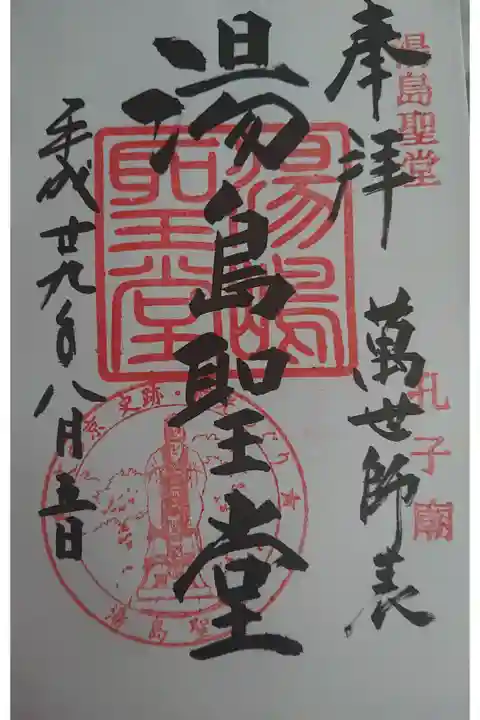 奉拝
湯島聖堂
萬世師表
孔子廟
湯島聖堂
湯島聖堂
平成廿九年八月五日
史跡・
湯島聖